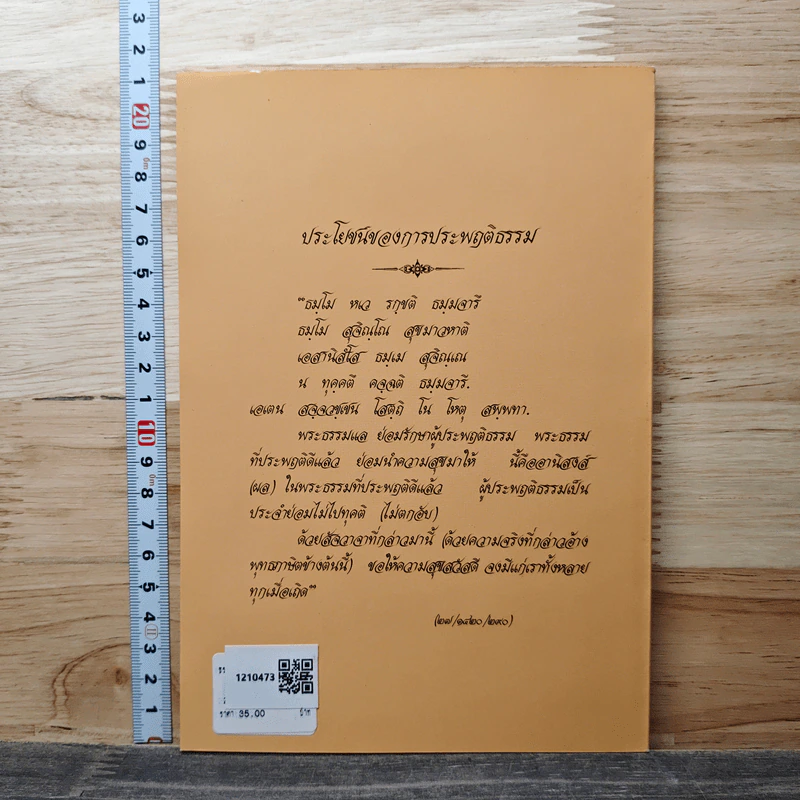 ประโยชน์ของการประพฤติธรรม
"ธมฺโม หเว รกฺขติ ธมฺมจารี
ธมฺโม สุจิณฺโณ สุขมาวหาติ
เอสานิสํโส ธมฺเม สุจิณฺเณ
น ทุคฺคตึ คจฺฉติ ธมฺมจารี.
เอเตน สจฺจวชฺเชน โสตฺถิ โน โหตุ สพฺพทา.
พระธรรมแล ย่อมรักษาผู้ประพฤติธรรม พระธรรม
ที่ประพฤติดีแล้ว ย่อมนำความสุขมาให้ นี้คืออานิสงส์
(ผล) ในพระธรรมที่ประพฤติดีแล้ว ผู้ประพฤติธรรมเป็น
ประจำย่อมไม่ไปทุคติ (ไม่ตกอับ)
ด้วยสัจวาจาที่กล่าวมานี้ (ด้วยความจริงที่กล่าวอ้าง
พุทธภาษิตข้างต้นนี้) ขอให้ความสุขสวัสดี จงมีแก่เราทั้งหลาย
ทุกเมื่อเถิด"
(๒๗/๑๔๒๐/๒๙๐)
1210473
ราคา 35.00 บาท
3
2
1
20
9
8
7
6
5
4
3
2
1
10
9
8
7
6
5
4
3
2
1